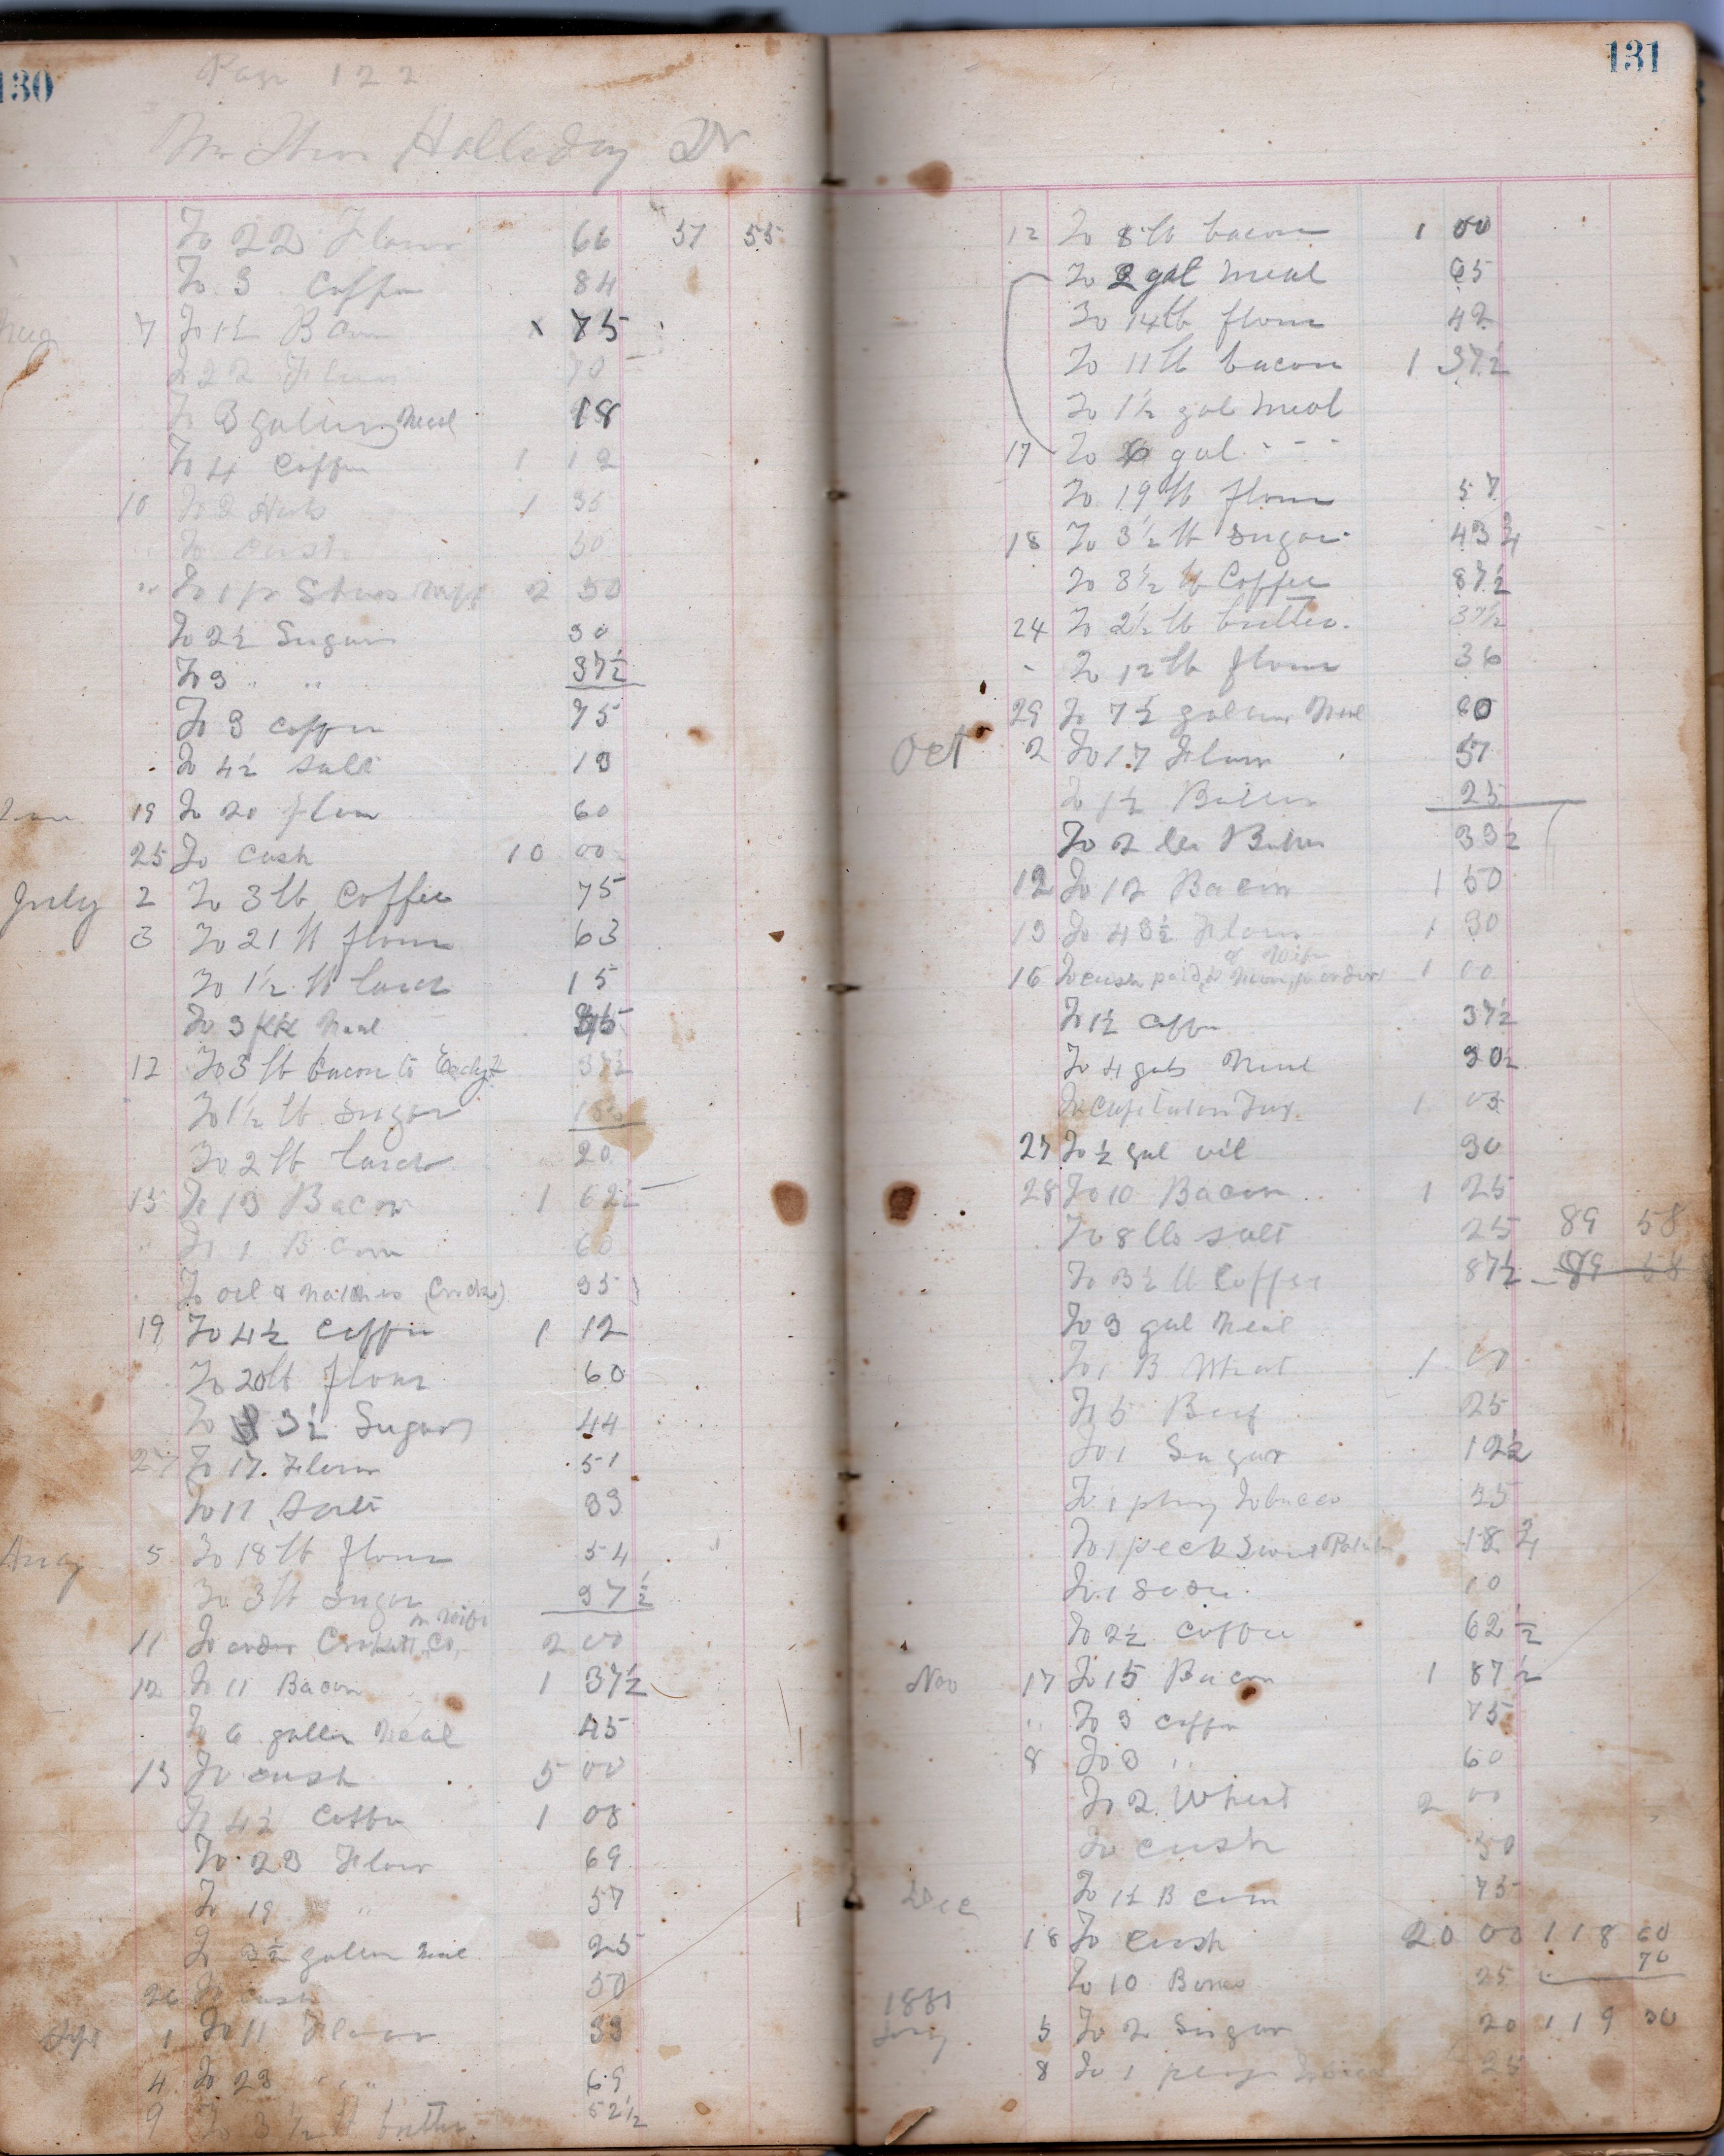 130
Page 122
Mr Holladay Dr
To 22 Flour 66 57 55
To 3 Coffee 84
Aug 7 To 1½ B Corn x 75
22 Flour 70
To 3 gallons Meal 18
To 4 Coffee 1 12
10 To 2 1 35
To Cash 50
" To 1 pr Shoes 2 50
To 2½ Sugar 30
To 3 " " 37½
To 3 Coffee 75
To 4½ Salt 13
19 To 20 flour 60
25 To Cash 10 00
July 2 To 3 lb Coffee 75
3 To 21 lb flour 63
To 1½ lb lard 15
To 3 Meal
12 To 3 lb bacon to 37½
To 1½ lb Sugar
To 2 lb lard 20
15 To 13 Bacon 1 62½
To 1 B Corn 60
To oil & Matches 35
19 To 4½ Coffee 1 12
To 20 lb flour 60
To 3½ Sugar 44
27 To 17 Flour 51
To 11 Salt 33
Aug 5 To 18 lb flour 54
To 3 lb Sugar 37½
11 To order Co, 2 00
12 To 11 Bacon 1 37½
To 6 gallon Meal 45
13 To cash 5 00
To 4½ Coffee 1 08
To 23 Flour 69
To 19 " " 57
To 3½ gallon Meal 25
26 To cash 50
Sept 1 To 11 Flour 33
4 To 23 " " 69
9 To 3½ lb butter 52½
131
12 To 8 lb bacon 1 00
To 2 gal Meal
To 14 lb flour 42
To 11 lb bacon 1 37½
To 1½ gal Meal
17 To 6 gal - - -
To 19 lb flour 57
18 To 3½ lb Sugar 43¾
To 3½ lb Coffee 87½
24 To 2½ lb butter 37½
- To 12 lb flour 36
29 To 7½ gallons Meal 60
Oct 2 To 17 Flour 51
To 1½ Butter 25
To 2 lbs Butter 33½
12 To 12 Bacon 1 50
13 To 43½ Flour 1 30
16 To cash paid order 1 00
To 1½ Coffee 37½
To 4 gals Meal 30½
To Capitation Tax 1 03
27 To ½ gal oil 30
28 To 10 Bacon 1 25
To 8 lbs salt 25 89 58
To 3½ lb Coffee 87½ 89 58
To 3 gal Meal
To 1 B Wheat 1 00
To 5 Beef 25
To 1 Sugar 12½
To 1 plug Tobacco 25
To 1 peck Sweet Potatoes 18¾
To 1 Soda 10
To 2½ Coffee 62½
Nov 17 To 15 Bacon 1 87½
" To 3 Coffee 75
8 To 3 " 60
To 2 Wheat 2 00
To Cash 50
Dec To 1½ B corn 75
18 To Cash 20 00 118 60
To 10 25 70
1881
5 To 2 Sugar 20 119 30
8 To 1 plug 25